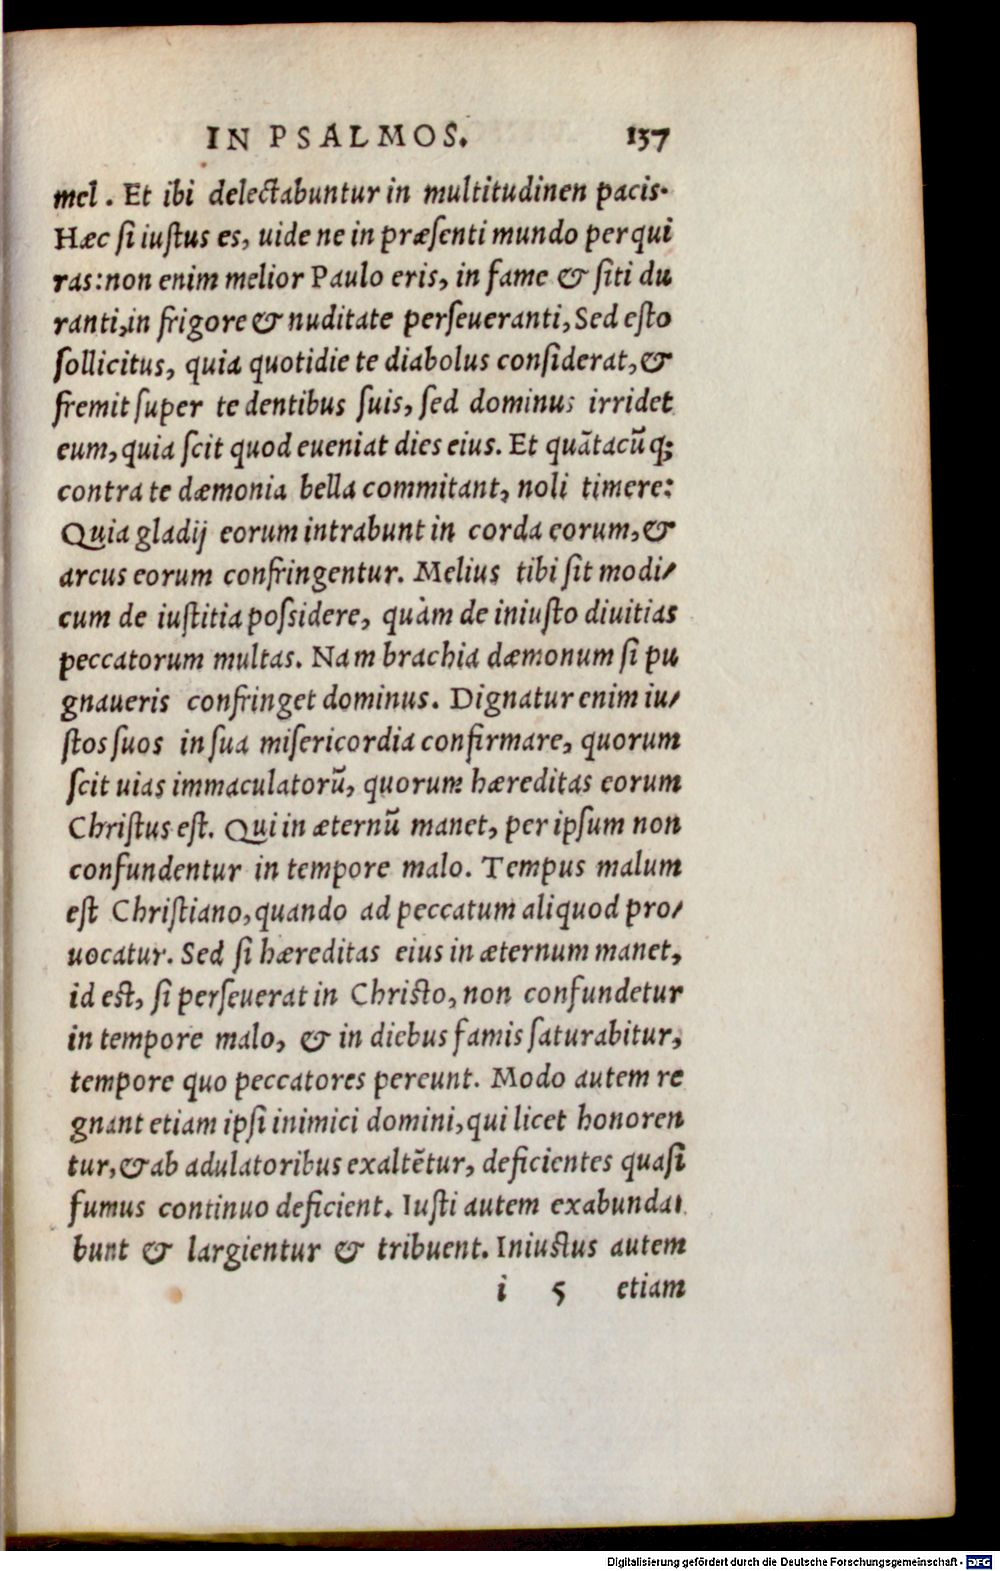 IN PSALMOS. 137
mel. Et ibi delectabuntur in multitudinen pacis.
Hæc si iustus es, uide ne in præsenti mundo perqui
ras: non enim melior Paulo eris, in fame & siti du
ranti, in frigore & nuditate perseueranti, Sed esto
sollicitus, quia quotidie te diabolus considerat, &
fremit super te dentibus suis, sed dominus irridet
eum, quia scit quod eueniat dies eius. Et quātacūq;
contra te dæmonia bella commitant, noli timere:
Quia gladij eorum intrabunt in corda eorum, &
arcus eorum confringentur. Melius tibi sit modi/
cum de iustitia possidere, quàm de iniusto diuitias
peccatorum multas. Nam brachia dæmonum si pu
gnaueris confringet dominus. Dignatur enim iu/
stos suos in sua misericordia confirmare, quorum
scit uias immaculatorū, quorum hæreditas eorum
Christus est. Qui in æternū manet, per ipsum non
confundentur in tempore malo. Tempus malum
est Christiano, quando ad peccatum aliquod pro/
uocatur. Sed si hæreditas eius in æternum manet,
id est, si perseuerat in Christo, non confundetur
in tempore malo, & in diebus famis saturabitur,
tempore quo peccatores pereunt. Modo autem re
gnant etiam ipsi inimici domini, qui licet honoren
tur, & ab adulatoribus exaltētur, deficientes quasi
fumus continuo deficient. Iusti autem exabunda/
bunt & largientur & tribuent. Iniustus autem
i 5 etiam
Digitalisierung gefördert durch die Deutsche Forschungsgemeinschaft - DFG